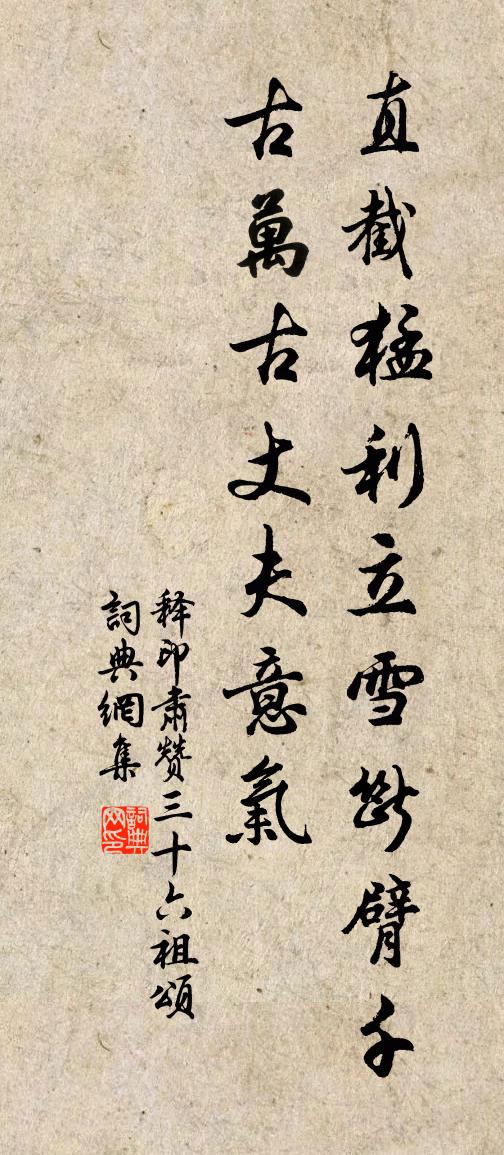 直截猛利立雪斷臂千
古萬古丈夫意氣
释印肅赞三十六祖頌
詞典網集
詞典
网印